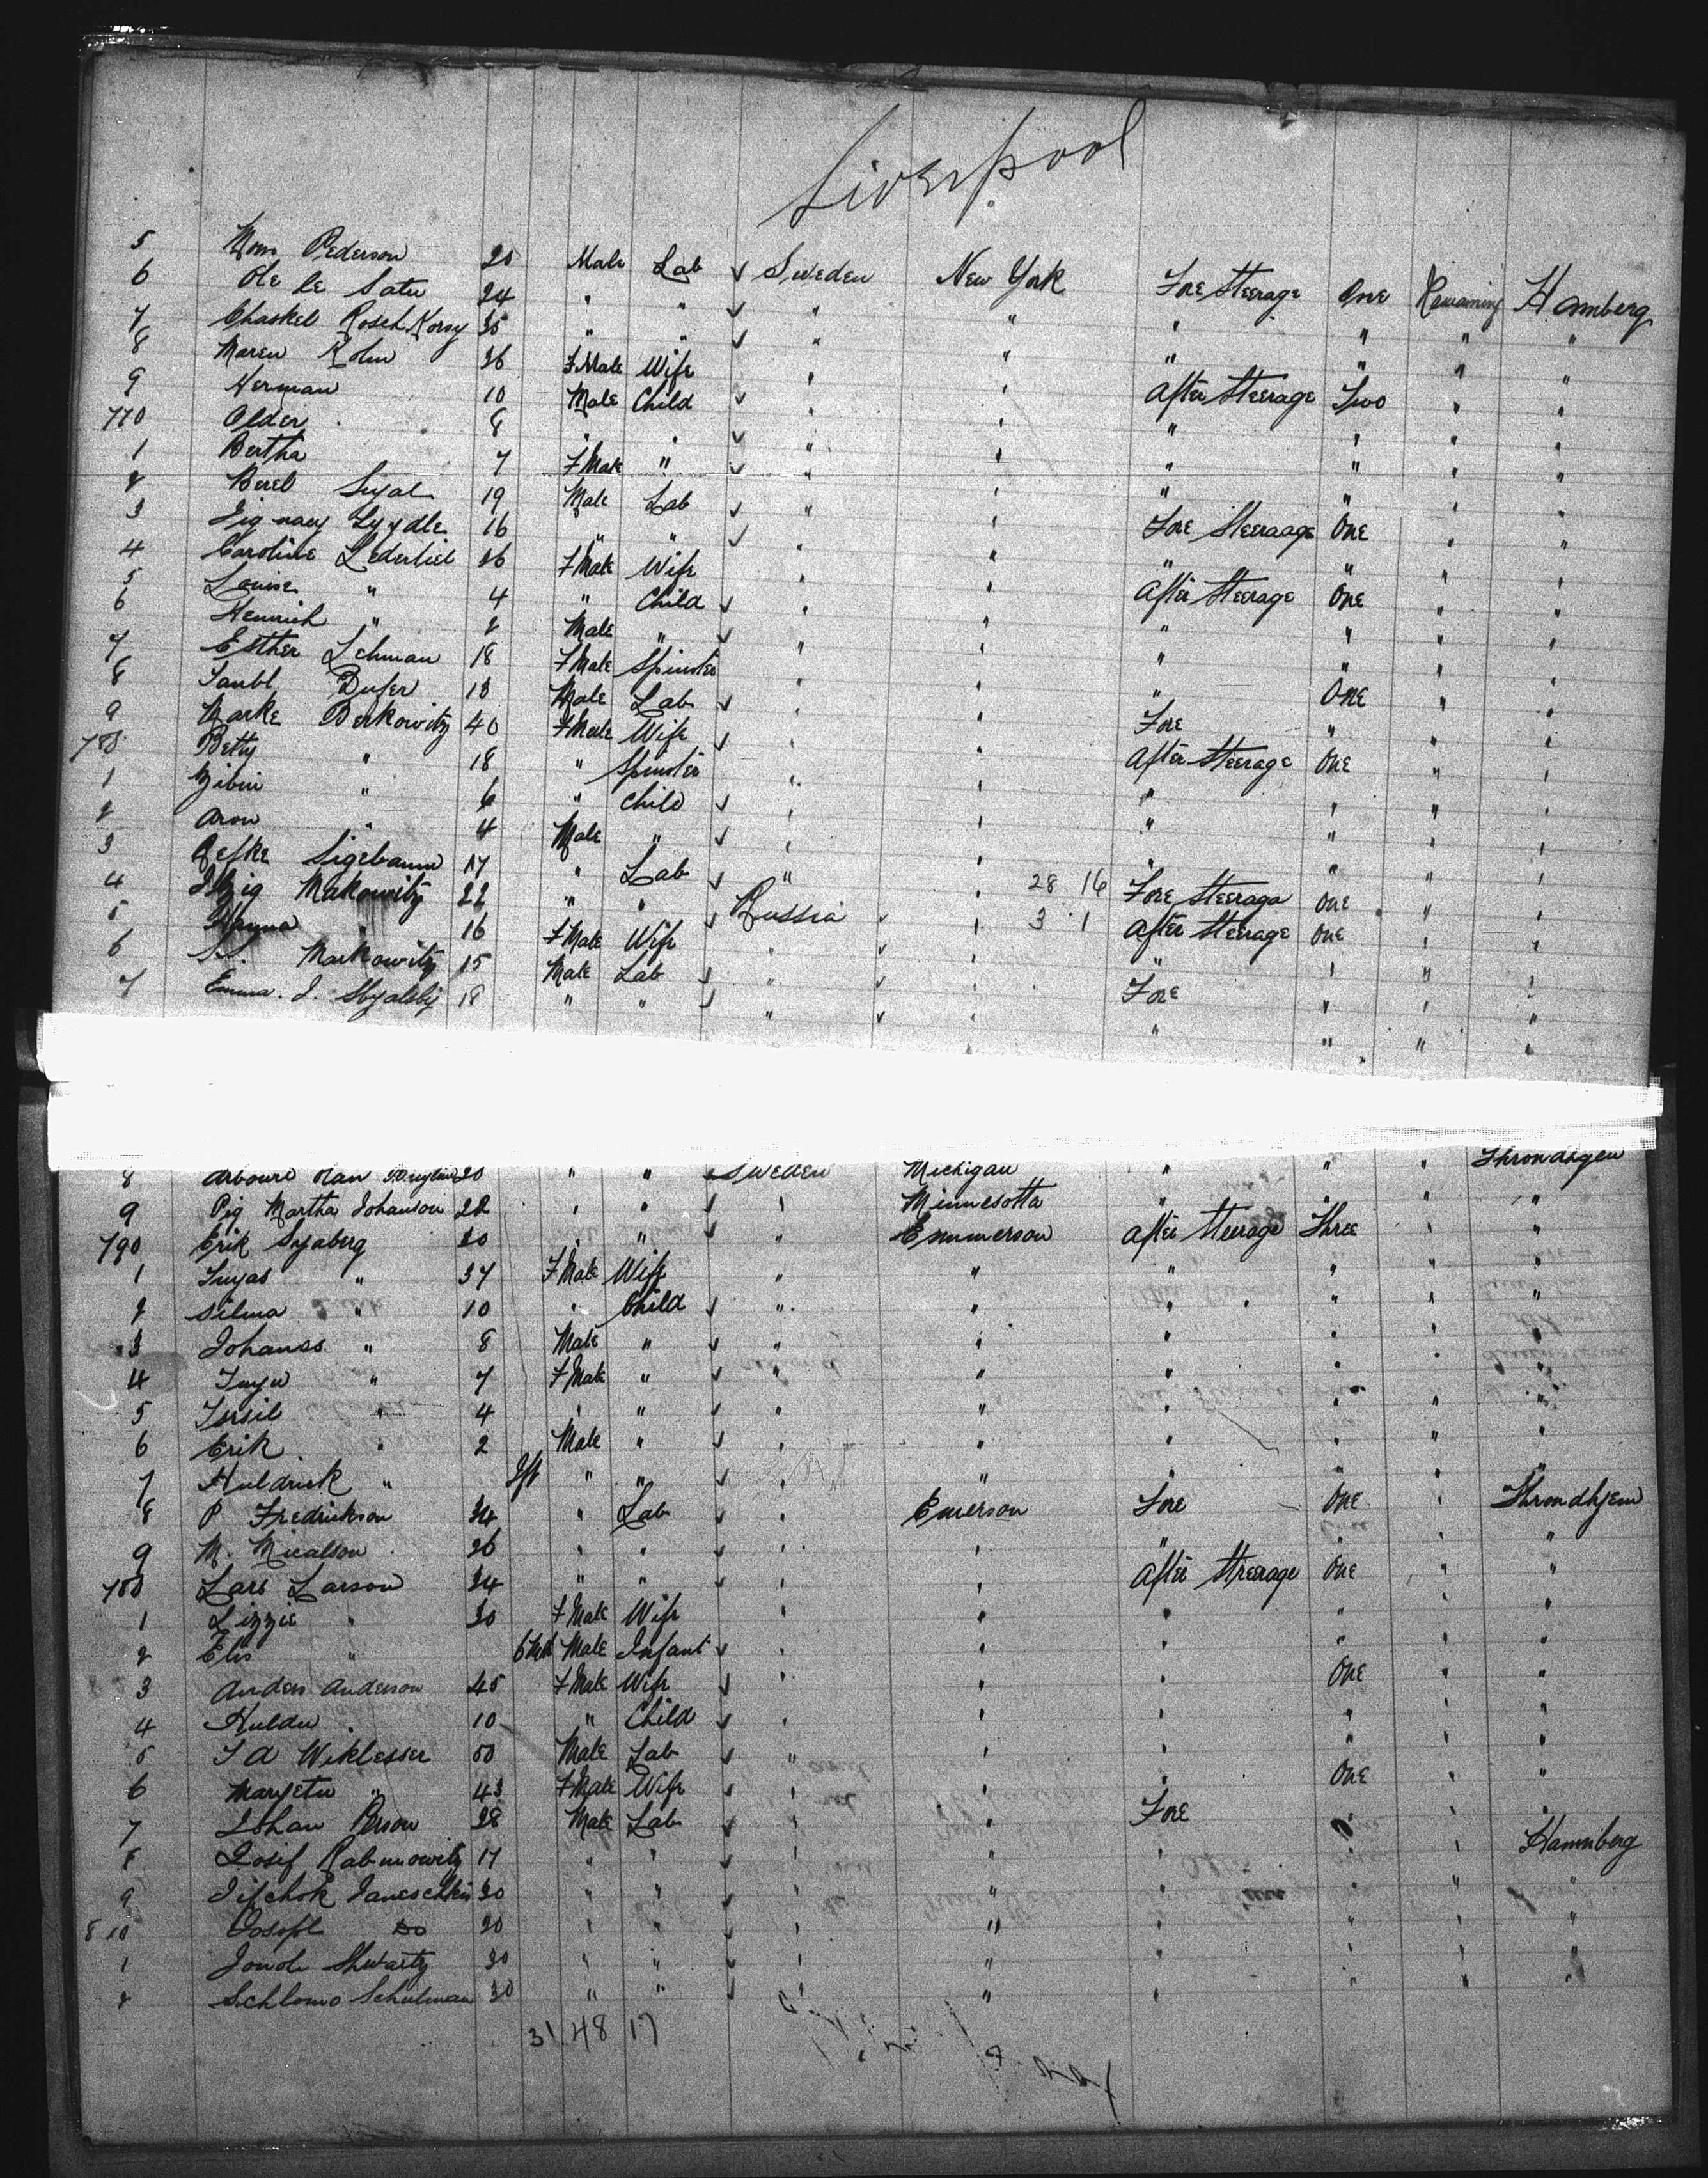 Liverpool
5 Mons Pederson 20 Male Lab ✓ Sweden New York Fore Steerage One Remaining Hamberg
6 Ole le Satu 24 " " ✓ " " " " " "
7 Chaskel Rosch Korsy 35 " " ✓ " " " " " "
8 Maren Kohn 36 F Male Wife " " After Steerage Two " "
9 Herman 10 Male Child ✓ " " " " " "
770 Older 8 " " ✓ " " " " " "
1 Bertha 7 F Male " ✓ " " " " " "
2 Berel 19 Male Lab ✓ " " Fore Steeraage One " "
3 16 " " ✓ " " " " " "
4 Caroline 26 F Male Wife " " After Steerage One " "
5 Louise " 4 " Child ✓ " " " " " "
6 Heinrich " 2 Male " ✓ " " " " " "
7 Esther Lehman 18 F Male Spinster " " " One " "
8 Taubl Dufer 18 Male Lab ✓ " " Fore " " "
9 Marke Berkowitz 40 F Male Wife ✓ " " After Steerage One " "
780 Betty " 18 " Spinster " " " " " "
1 " 6 " Child ✓ " " " " " "
2 Aron " 4 Male " ✓ " " " " " "
3 Sigebaum 17 " Lab ✓ " " 28 16 Fore Steerage One " "
4 Itzig Makowitz 22 " " ✓ Russia ✓ " 3 1 After Steerage One " "
5 Hanna 16 F Male Wife " ✓ " " " " "
6 Markowitz 15 Male Lab ✓ " ✓ " Fore " " "
7 Emma J. 18 " " ✓ " ✓ " " " " "
8 20 " " Sweden Michigan " " Throndhgen
9 Pig Martha Johanson 22 " " ✓ " Minnesotta " " " "
790 Erik Syaberg 30 " " ✓ " Emmerson After Steerage Three " "
1 Inyas " 37 F Male Wife " " " " " "
2 Silma " 10 " Child ✓ " " " " " "
3 Johanss " 8 Male " ✓ " " " " " "
4 Inyu " 7 F Male " ✓ " " " " " "
5 " 4 " " ✓ " " " " " "
6 Erik " 2 Male " ✓ " " " " " "
7 Huldrick " Ift " " ✓ " " " " " "
8 P Fredrickson 34 " Lab ✓ " Emerson Fore One " Throndhjem
9 M. Micalson 26 " " ✓ " " " " "
700 Lars Larson 34 " " ✓ " " After Steerage One " "
1 Lizzie " 30 F Male Wife " " " " " "
2 Elis " 6 Mth Male Infant ✓ " " " " " "
3 Anders Anderson 45 F Male Wife ✓ " " " One " "
4 Huldu " 10 " Child ✓ " " " " " "
5 J A Wiklesser 50 Male Lab ✓ " " " " " "
6 Maryetu " 43 F Male Wife ✓ " " " One " "
7 Johan Person 28 Male Lab ✓ " " Fore " " "
8 Josif Rabinowitz 17 " " ✓ " " " " " Hamnberg
9 Jifchok Janeschkis 30 " " ✓ " " " " " "
810 Do 20 " " ✓ " " " " " "
1 Shwartz 30 " " ✓ " " " " " "
2 Schlomo Schulman 30 " " ✓ " " " " "
31 48 17